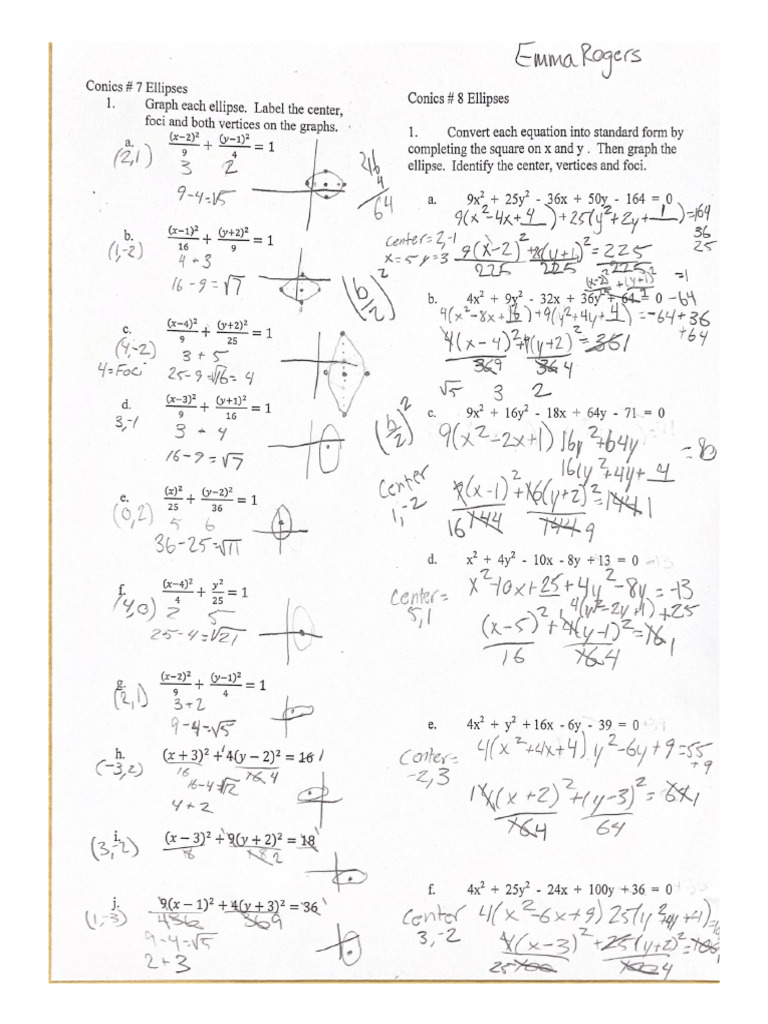 Emma Rogers
Conics # 7 Ellipses
1. Graph each ellipse. Label the center,
foci and both vertices on the graphs.
a. (x−2)²/9 + (y−1)²/4 = 1
(2,1)
3 2
9-4=√5
64
b. (x−1)²/16 + (y+2)²/9 = 1
(1,-2)
4 + 3
16-9=√7
(b/2)²
c. (x−4)²/9 + (y+2)²/25 = 1
(4,-2)
3 + 5
4=Foci 25-9=√16=4
d. (x−3)²/9 + (y+1)²/16 = 1
3,-1
3 - 4
16-9=√7
e. (x)²/25 + (y−2)²/36 = 1
(0,2)
5 6
36-25=√11
f. (x−4)²/4 + y²/25 = 1
(4,0)
2 5
25-4=√21
g. (x−2)²/9 + (y−1)²/4 = 1
(2,1)
3+2
9-4=√5
h. (x + 3)² + 4(y − 2)² = 16
(-3,2)
16 16 4
16-4=√12
4+2
i. (x − 3)² + 9(y + 2)² = 18
(3,-2)
18 18 2
j. 9(x − 1)² + 4(y + 3)² = 36
(1,-3)
4 36 36 9
9-4=√5
2+3
Conics # 8 Ellipses
1. Convert each equation into standard form by
completing the square on x and y . Then graph the
ellipse. Identify the center, vertices and foci.
a. 9x² + 25y² - 36x + 50y - 164 = 0
9(x²-4x+4)+25(y²+2y+1)=164
36
25
center=2,-1
x=5 y=3
9(x-2)²+25(y+1)²=225
225 225 225
=1
b. 4x² + 9y² - 32x + 36y + 64 = 0 -64
4(x²-8x+16)+9(y²+4y+4)=-64+36
+64
4(x-4)²+9(y+2)²=36 1
36 9 36 4
√5 3 2
(b/2)²
c. 9x² + 16y² - 18x + 64y - 71 = 0
9(x²-2x+1) 16y²+64y
=80
16(y²+4y+4
center
1,-2
9(x-1)²+16(y+2)²=144 1
16 144 144 9
d. x² + 4y² - 10x - 8y + 13 = 0
x²-10x+25+4y²-8y=-13
4(y²-2y+1)+25
center=
5,1
(x-5)²+4(y-1)²=16 1
16 16 4
e. 4x² + y² + 16x - 6y - 39 = 0
4(x²+4x+4) y²-6y+9=55
+9
center=
-2,3
4(x+2)²+(y-3)²=64 1
64 64
f. 4x² + 25y² - 24x + 100y + 36 = 0
center 4(x²-6x+9) 25(y²+4y+4)=
3,-2
4(x-3)²+25(y+2)²=100 1
25 100 100 4